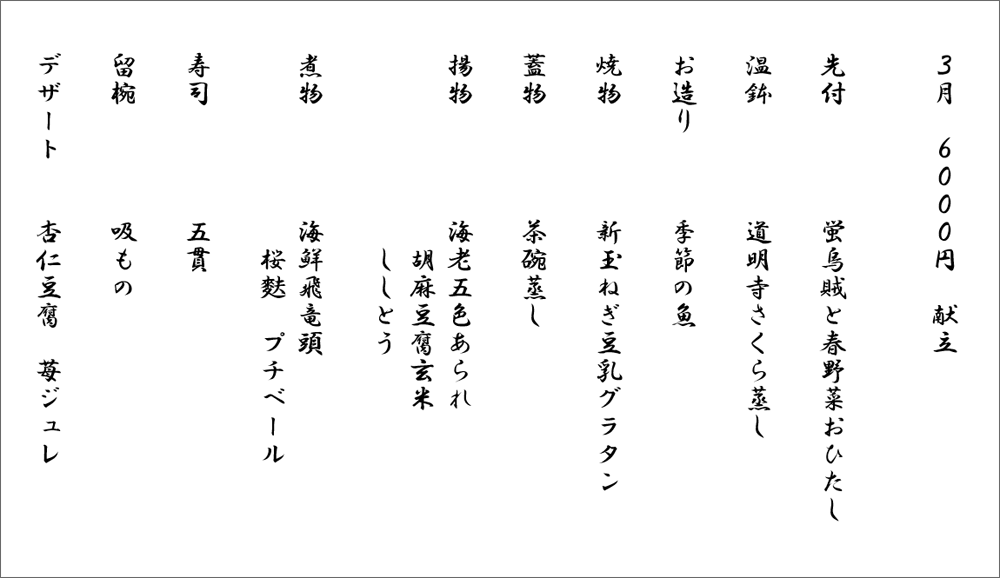 3月　6000円　献立
先付　蛍烏賊と春野菜おひたし
温鉢　道明寺さくら蒸し
お造り　季節の魚
焼物　新玉ねぎ豆乳グラタン
蓋物　茶碗蒸し
揚物　海老五色あられ
胡麻豆腐玄米
ししとう
煮物　海鮮飛竜頭
桜麩　プチベール
寿司　五貫
留椀　吸もの
デザート　杏仁豆腐　苺ジュレ